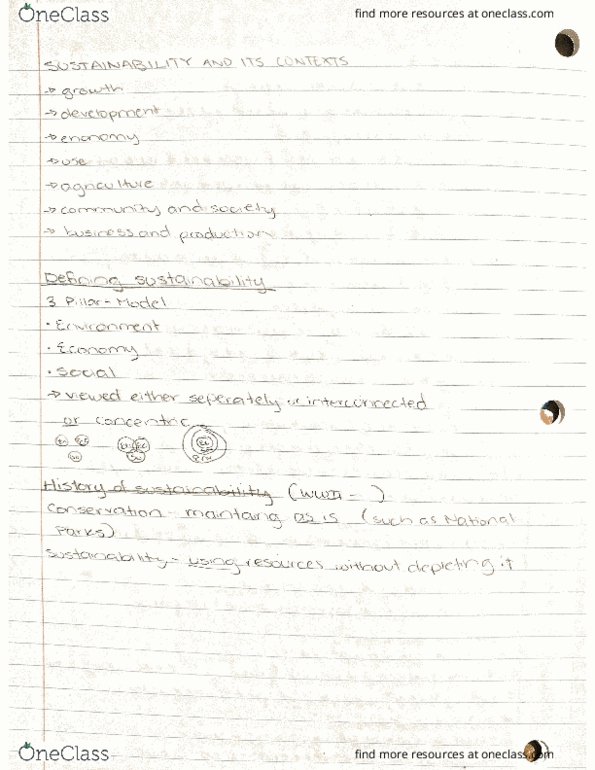 OneClass
find more resources at oneclass.com
SUSTAINABILITY AND ITS CONTEXTS
→ growth
→ development
→ economy
→ use
→ agriculture
→ community and society
→ business and production
Defining sustainability
3 Pillar-Model
• Environment
• Economy
• Social
→ viewed either seperately or interconnected
or concentric
History of sustainability (WWII - )
Conservation - maintaing as is (such as National
Parks)
Sustainability - using resources without depleting it
OneClass
find more resources at oneclass.com